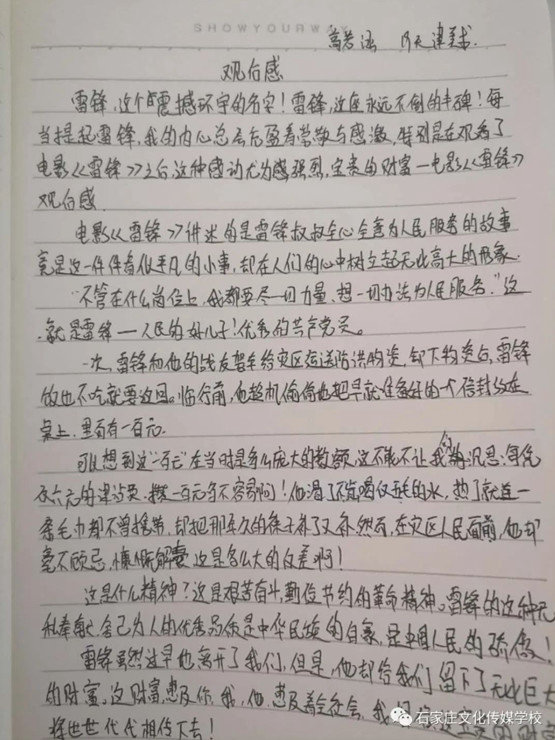 SHOWYOURWAY
观后感
雷锋,这个震撼环宇的名字!雷锋,这座永远不倒的丰碑!每
当提起雷锋,我的内心总会充盈着赞叹与感激,特别是在观看了
电影《雷锋》之后,这种感动尤为感强烈,宝贵的财富—电影《雷锋》
观后感
电影《雷锋》讲述的是雷锋叔叔全心全意为人民服务的故事
竟是这一件件看似平凡的小事,却在人们的心中树立起无比高大的形象.
"不管在什么岗位上,我都要尽一切力量,想一切办法为人民服务."这
就是雷锋——人民的好儿子!优秀的共产党员。
一次,雷锋和他的战友驾车给灾区运送防洪物资,卸下物资后,雷锋
饭也不吃就要返回。临行前,他趁机偷偷地把早就准备好的一个信封放在
桌上.里面有一百元.
可以想到这一百元在当时是多么庞大的数额,这不能不让我们沉思:每
六元的津贴费.攒一百元多不容易啊!他渴了不舍喝
条毛巾都不曾携带,却把那
毫不顾忌,慷慨解囊.这是多么大的反差啊!
这是什么精神?这是艰苦奋斗,勤俭节约的革命精神。雷锋的这种无
私奉献,舍己为人的优秀品质是中华民族的自豪,是中国人民的骄傲!
雷锋虽然过早地离开了我们,但是,他却给我们留下了无比巨大
的财富。这财富,惠及你,我,他,惠及着全社会,我
将世世代代相传下去!
石家庄文化传媒学校